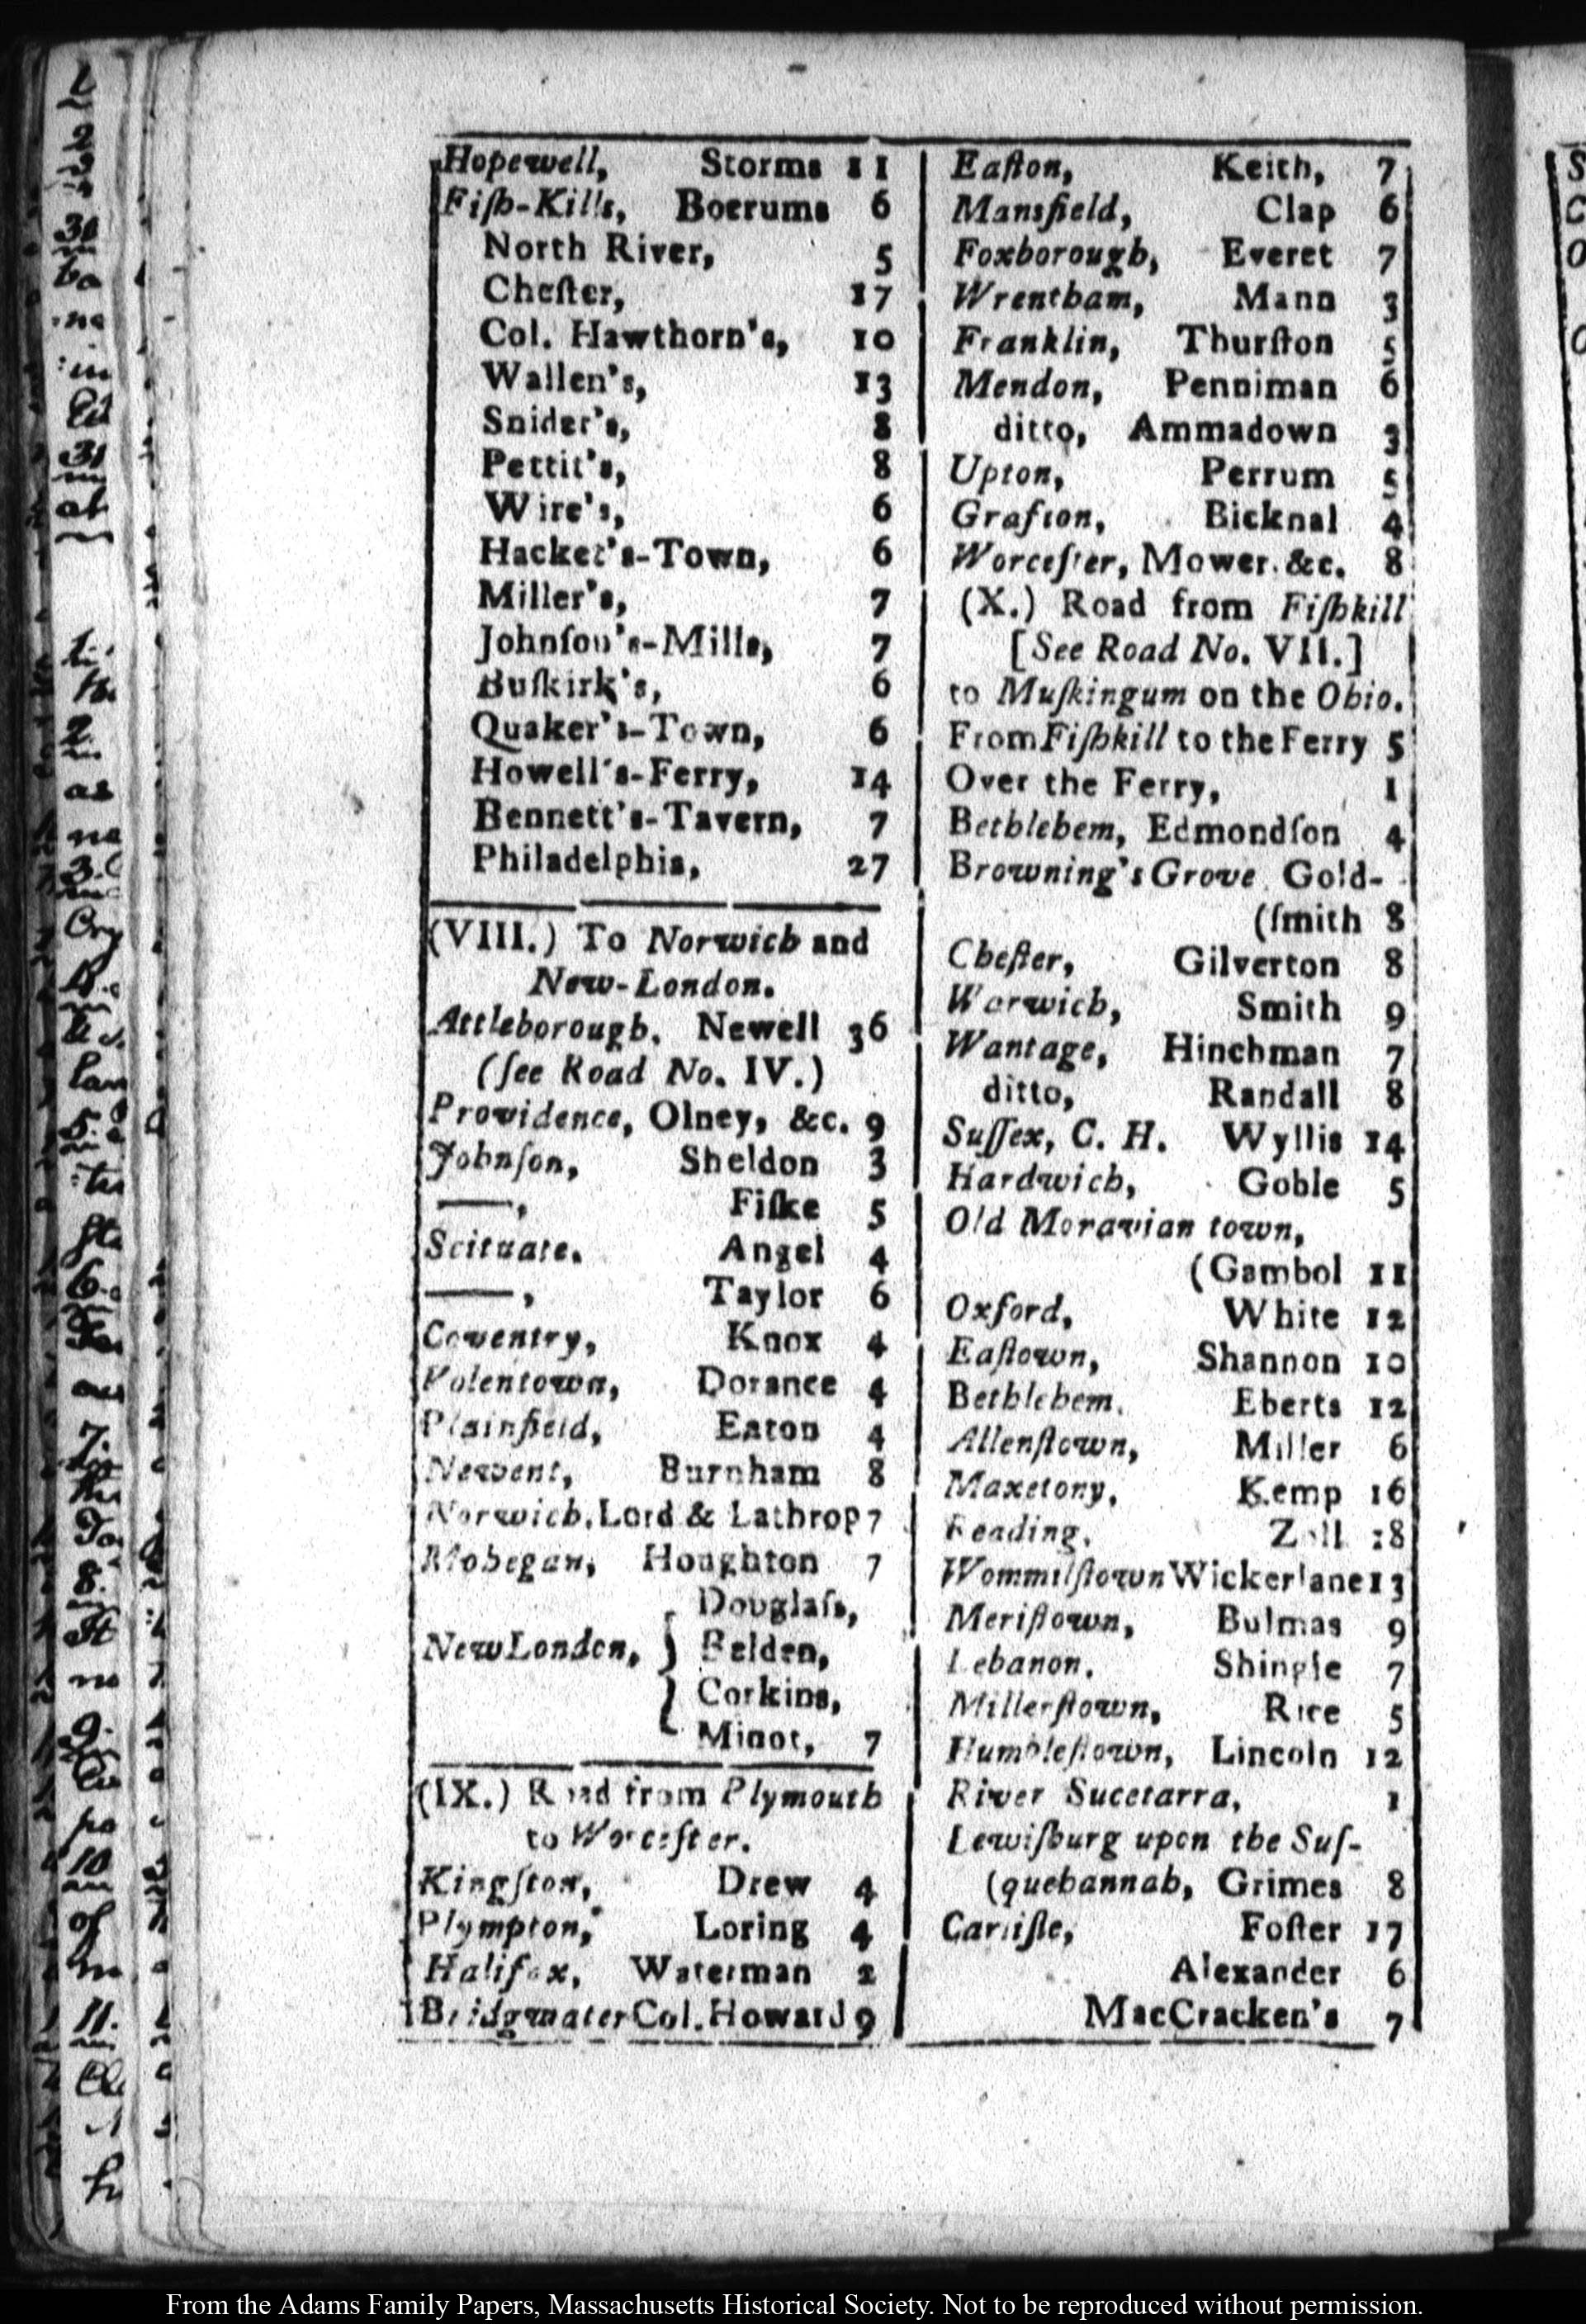 Hopewell, Storms 11
Fiſh-Kills, Boerums 6
North River, 5
Cheſter, 17
Col. Hawthorn's, 10
Wallen's, 13
Snider's, 8
Pettit's, 8
Wire's, 6
Hacket's-Town, 6
Miller's, 7
Johnſon's-Mills, 7
Buſkirk's, 6
Quaker's-Town, 6
Howell's-Ferry, 14
Bennett's-Tavern, 7
Philadelphia, 27
(VIII.) To Norwich and
New-London.
Attleborough, Newell 36
(ſee Road No. IV.)
Providence, Olney, &c. 9
Johnſon, Sheldon 3
——, Fiſke 5
Scituate, Angel 4
——, Taylor 6
Coventry, Knox 4
Volentown, Dorance 4
Plainfield, Eaton 4
Newent, Burnham 8
Norwich, Lord & Lathrop 7
Mohegan, Houghton 7
Douglaſs,
New London, Belden,
Corkins,
Minot, 7
(IX.) Road from Plymouth
to Worceſter.
Kingſton, Drew 4
Plympton, Loring 4
Halifax, Waterman 2
Bridgwater Col. Howard 9
Eaſton, Keith, 7
Mansfield, Clap 6
Foxborough, Everet 7
Wrentham, Mann 3
Franklin, Thurſton 5
Mendon, Penniman 6
ditto, Ammadown 3
Upton, Perrum 5
Grafton, Bicknal 4
Worceſter, Mower. &c. 8
(X.) Road from Fiſhkill
[See Road No. VII.]
to Muſkingum on the Ohio.
From Fiſhkill to the Ferry 5
Over the Ferry, 1
Bethlehem, Edmondſon 4
Browning's Grove Gold-
(ſmith 8
Cheſter, Gilverton 8
Warwich, Smith 9
Wantage, Hinchman 7
ditto, Randall 8
Suſſex, C. H. Wyllis 14
Hardwich, Goble 5
Old Moravian town,
(Gambol 11
Oxford, White 12
Eaſtown, Shannon 10
Bethlehem, Eberts 12
Allenſtown, Miller 6
Maxetony, Kemp 16
Reading, 18
Wommilſtown Wickerlane 13
Meriſtown, Bulmas 9
Lebanon, Shingle 7
Millerſtown, Rice 5
Humbleſtown, Lincoln 12
River Sucetarra, 1
Lewiſburg upon the Suſ-
(quehannah, Grimes 8
Carliſle, Foſter 17
Alexander 6
MacCracken's 7
From the Adams Family Papers, Massachusetts Historical Society. Not to be reproduced without permission.